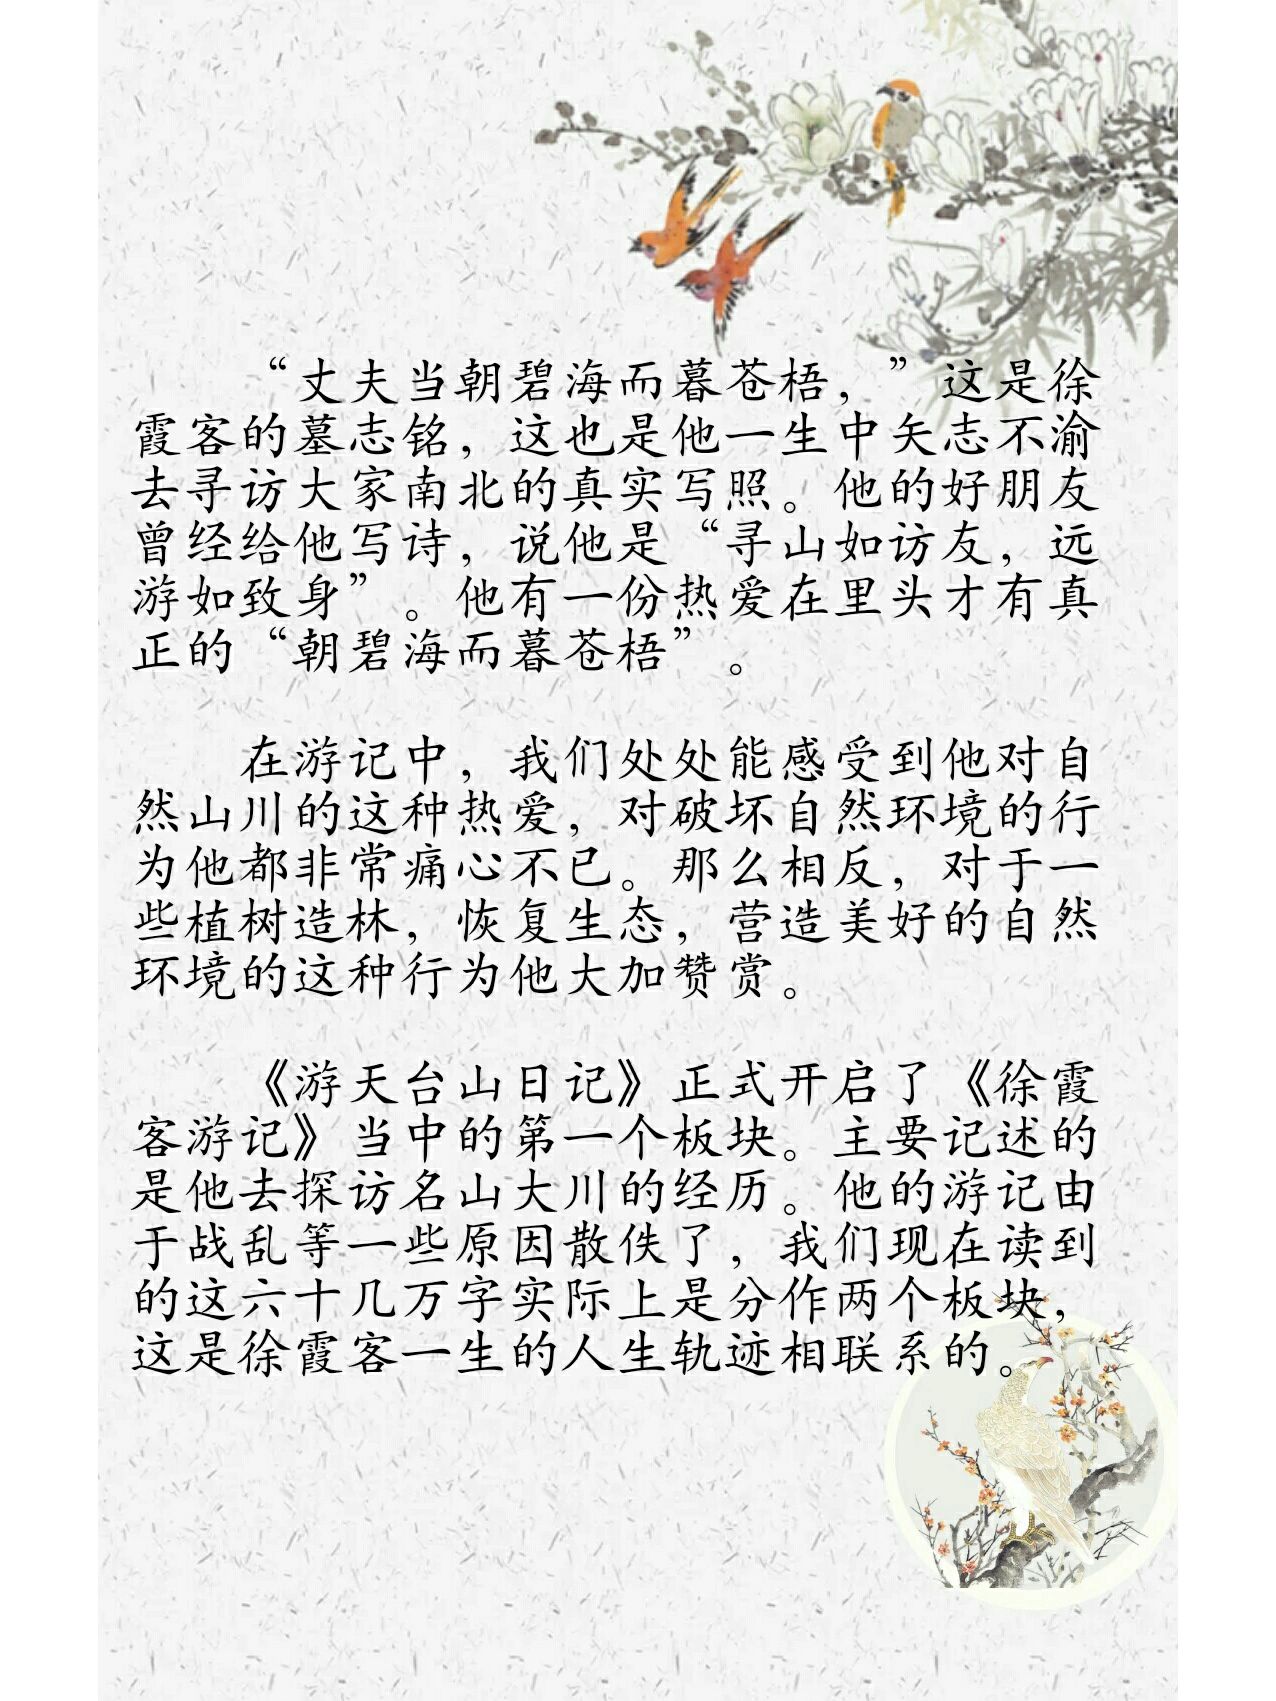 “丈夫当朝碧海而暮苍梧，”这是徐
霞客的墓志铭，这也是他一生中矢志不渝
去寻访大家南北的真实写照。他的好朋友
曾经给他写诗，说他是“寻山如访友，远
游如致身”。他有一份热爱在里头才有真
正的“朝碧海而暮苍梧”。
在游记中，我们处处能感受到他对自
然山川的这种热爱，对破坏自然环境的行
为他都非常痛心不已。那么相反，对于一
些植树造林，恢复生态，营造美好的自然
环境的这种行为他大加赞赏。
《游天台山日记》正式开启了《徐霞
客游记》当中的第一个板块。主要记述的
是他去探访名山大川的经历。他的游记由
于战乱等一些原因散佚了，我们现在读到
的这六十几万字实际上是分作两个板块，
这是徐霞客一生的人生轨迹相联系的。